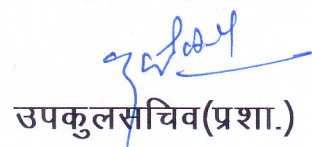 उपकुलसचिव(प्रशा.)